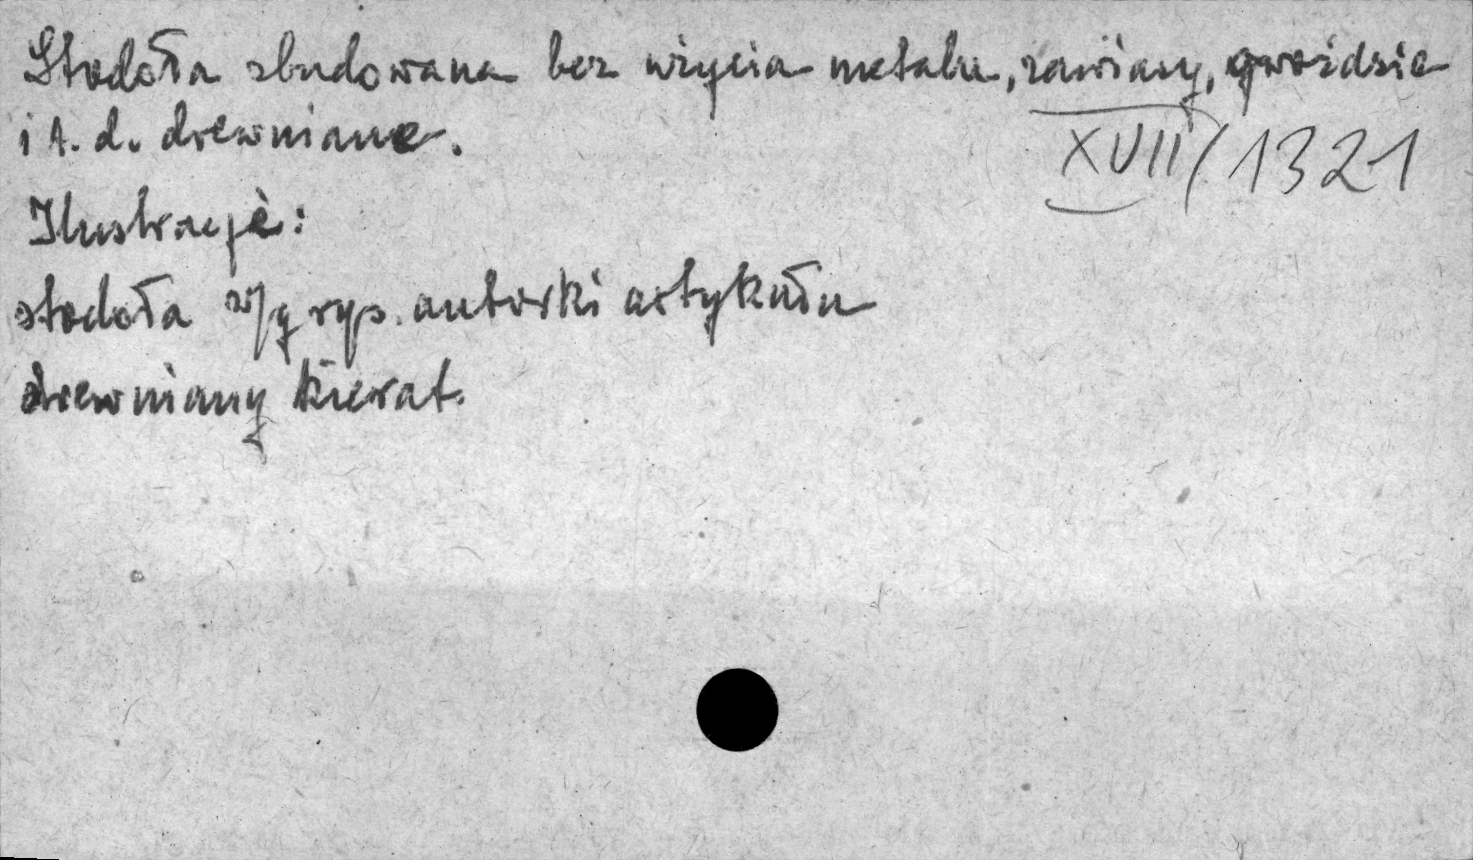 Stodoła zbudowana bez użycia metalu, zawiasy, gwoździe
i t. d. drewniane.
XVII/1321
Ilustracje:
stodoła w/g rys. autorki artykułu
drewniany kierat.